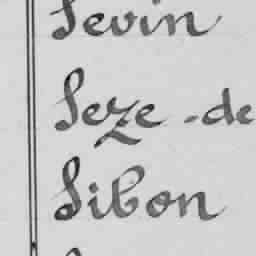 Sevin
Seze - de
Sibon